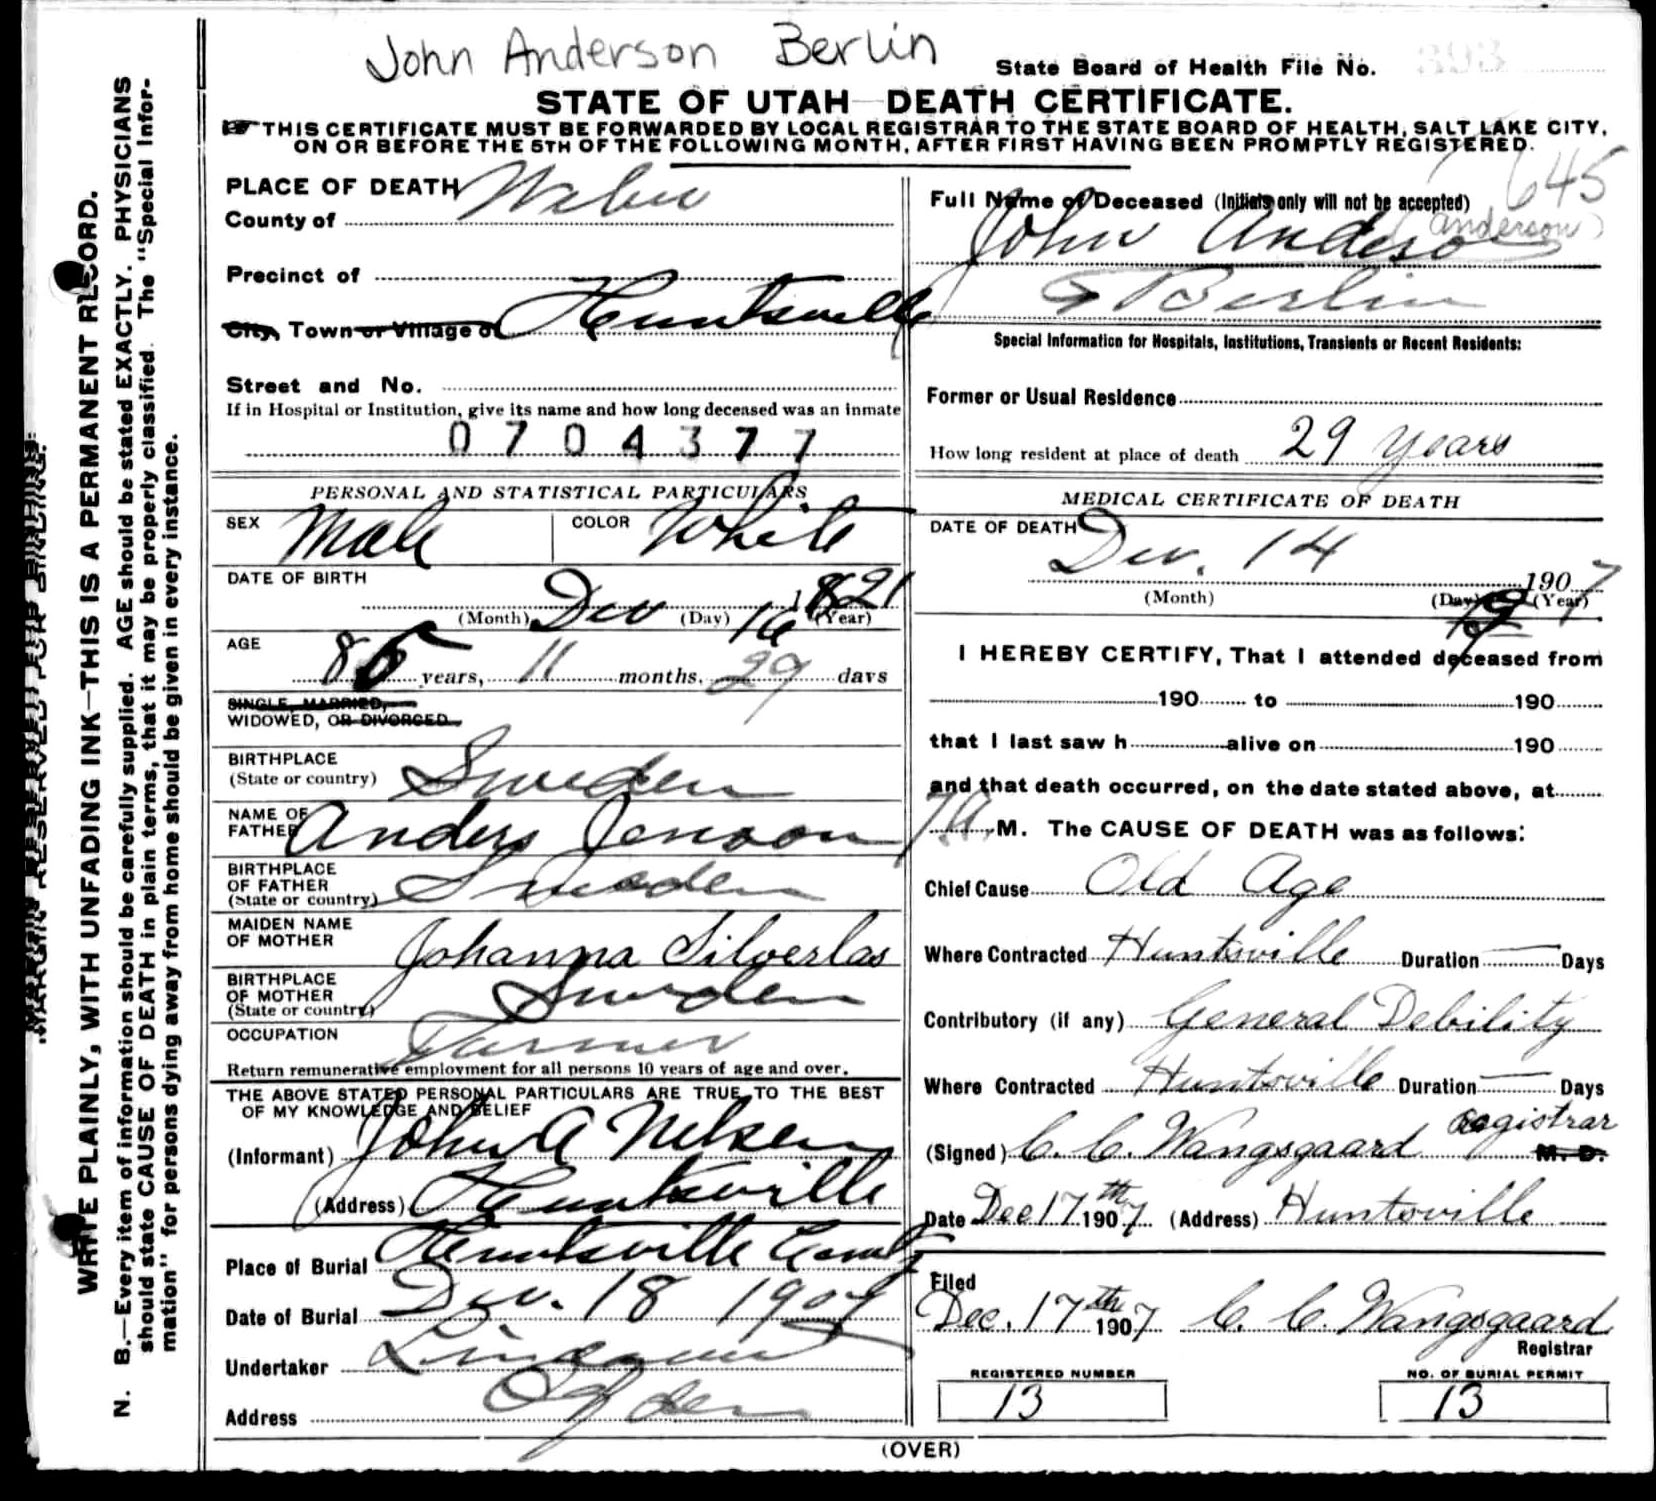 John Anderson Berlin
State Board of Health File No. 393
STATE OF UTAH—DEATH CERTIFICATE.
☞ THIS CERTIFICATE MUST BE FORWARDED BY LOCAL REGISTRAR TO THE STATE BOARD OF HEALTH, SALT LAKE CITY,
ON OR BEFORE THE 5TH OF THE FOLLOWING MONTH, AFTER FIRST HAVING BEEN PROMPTLY REGISTERED.
645
PLACE OF DEATH
County of Weber
Precinct of
City, Town or Village of Huntsville
Street and No.
If in Hospital or Institution, give its name and how long deceased was an inmate
0704377
Full Name of Deceased (Initials only will not be accepted)
John Anderso (anderson)
Berlin
Special Information for Hospitals, Institutions, Transients or Recent Residents:
Former or Usual Residence
How long resident at place of death 29 years
PERSONAL AND STATISTICAL PARTICULARS
SEX Male COLOR White
DATE OF BIRTH
(Month) Dec (Day) 16 1821 (Year)
AGE
85 years, 11 months, 29 days
SINGLE, MARRIED,
WIDOWED, OR DIVORCED
BIRTHPLACE
(State or country) Sweden
NAME OF
FATHER Anders Jenson
BIRTHPLACE
OF FATHER
(State or country) Sweden
MAIDEN NAME
OF MOTHER Johanna Silverlas
BIRTHPLACE
OF MOTHER
(State or country) Sweden
OCCUPATION Farmer
Return remunerative employment for all persons 10 years of age and over.
THE ABOVE STATED PERSONAL PARTICULARS ARE TRUE TO THE BEST
OF MY KNOWLEDGE AND BELIEF
(Informant) John A Nelsen
(Address) Huntsville
Place of Burial Huntsville
Date of Burial Dec. 18 1907
Undertaker
Address Ogden
MEDICAL CERTIFICATE OF DEATH
DATE OF DEATH
Dec. 14 1907
(Month) (Day) (Year)
I HEREBY CERTIFY, That I attended deceased from
190 to 190
that I last saw h alive on 190
and that death occurred, on the date stated above, at
7 a. M. The CAUSE OF DEATH was as follows:
Chief Cause Old Age
Where Contracted Huntsville Duration — Days
Contributory (if any) General Debility
Where Contracted Huntsville Duration — Days
(Signed) C. C. Wangsgaard Registrar M. D.
Date Dec 17th 1907 (Address) Huntsville
Filed
Dec. 17th 1907 C. C. Wangsgaard
Registrar
REGISTERED NUMBER
13
NO. OF BURIAL PERMIT
13
(OVER)
MARGIN RESERVED FOR BINDING.
WRITE PLAINLY, WITH UNFADING INK—THIS IS A PERMANENT RECORD.
N. B.—Every item of information should be carefully supplied. AGE should be stated EXACTLY. PHYSICIANS
should state CAUSE OF DEATH in plain terms, that it may be properly classified. The "Special Infor-
mation" for persons dying away from home should be given in every instance.